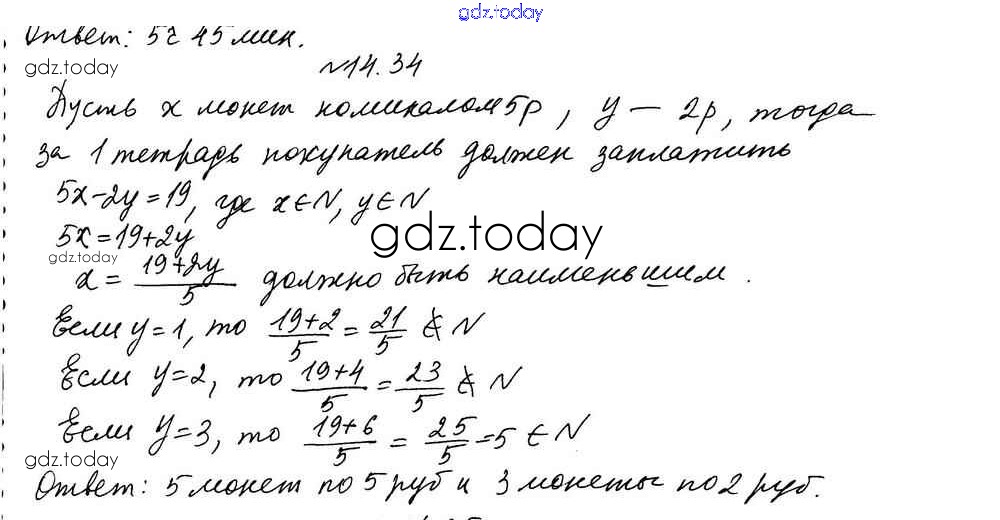 gdz.today
Ответ: 5 г 45 мин.
gdz.today
№14.34
Пусть x монет номиналом 5р, y — 2р, тогда
за 1 тетрадь покупатель должен заплатить
5x-2y=19, где x∈N, y∈N
5x=19+2y
gdz.today
gdz.today
x = (19+2y)/5 должно быть наименьшим.
Если y=1, то (19+2)/5 = 21/5 ∉ N
Если y=2, то (19+4)/5 = 23/5 ∉ N
Если y=3, то (19+6)/5 = 25/5 =5 ∈ N
gdz.today
gdz.today
Ответ: 5 монет по 5 руб и 3 монеты по 2 руб.